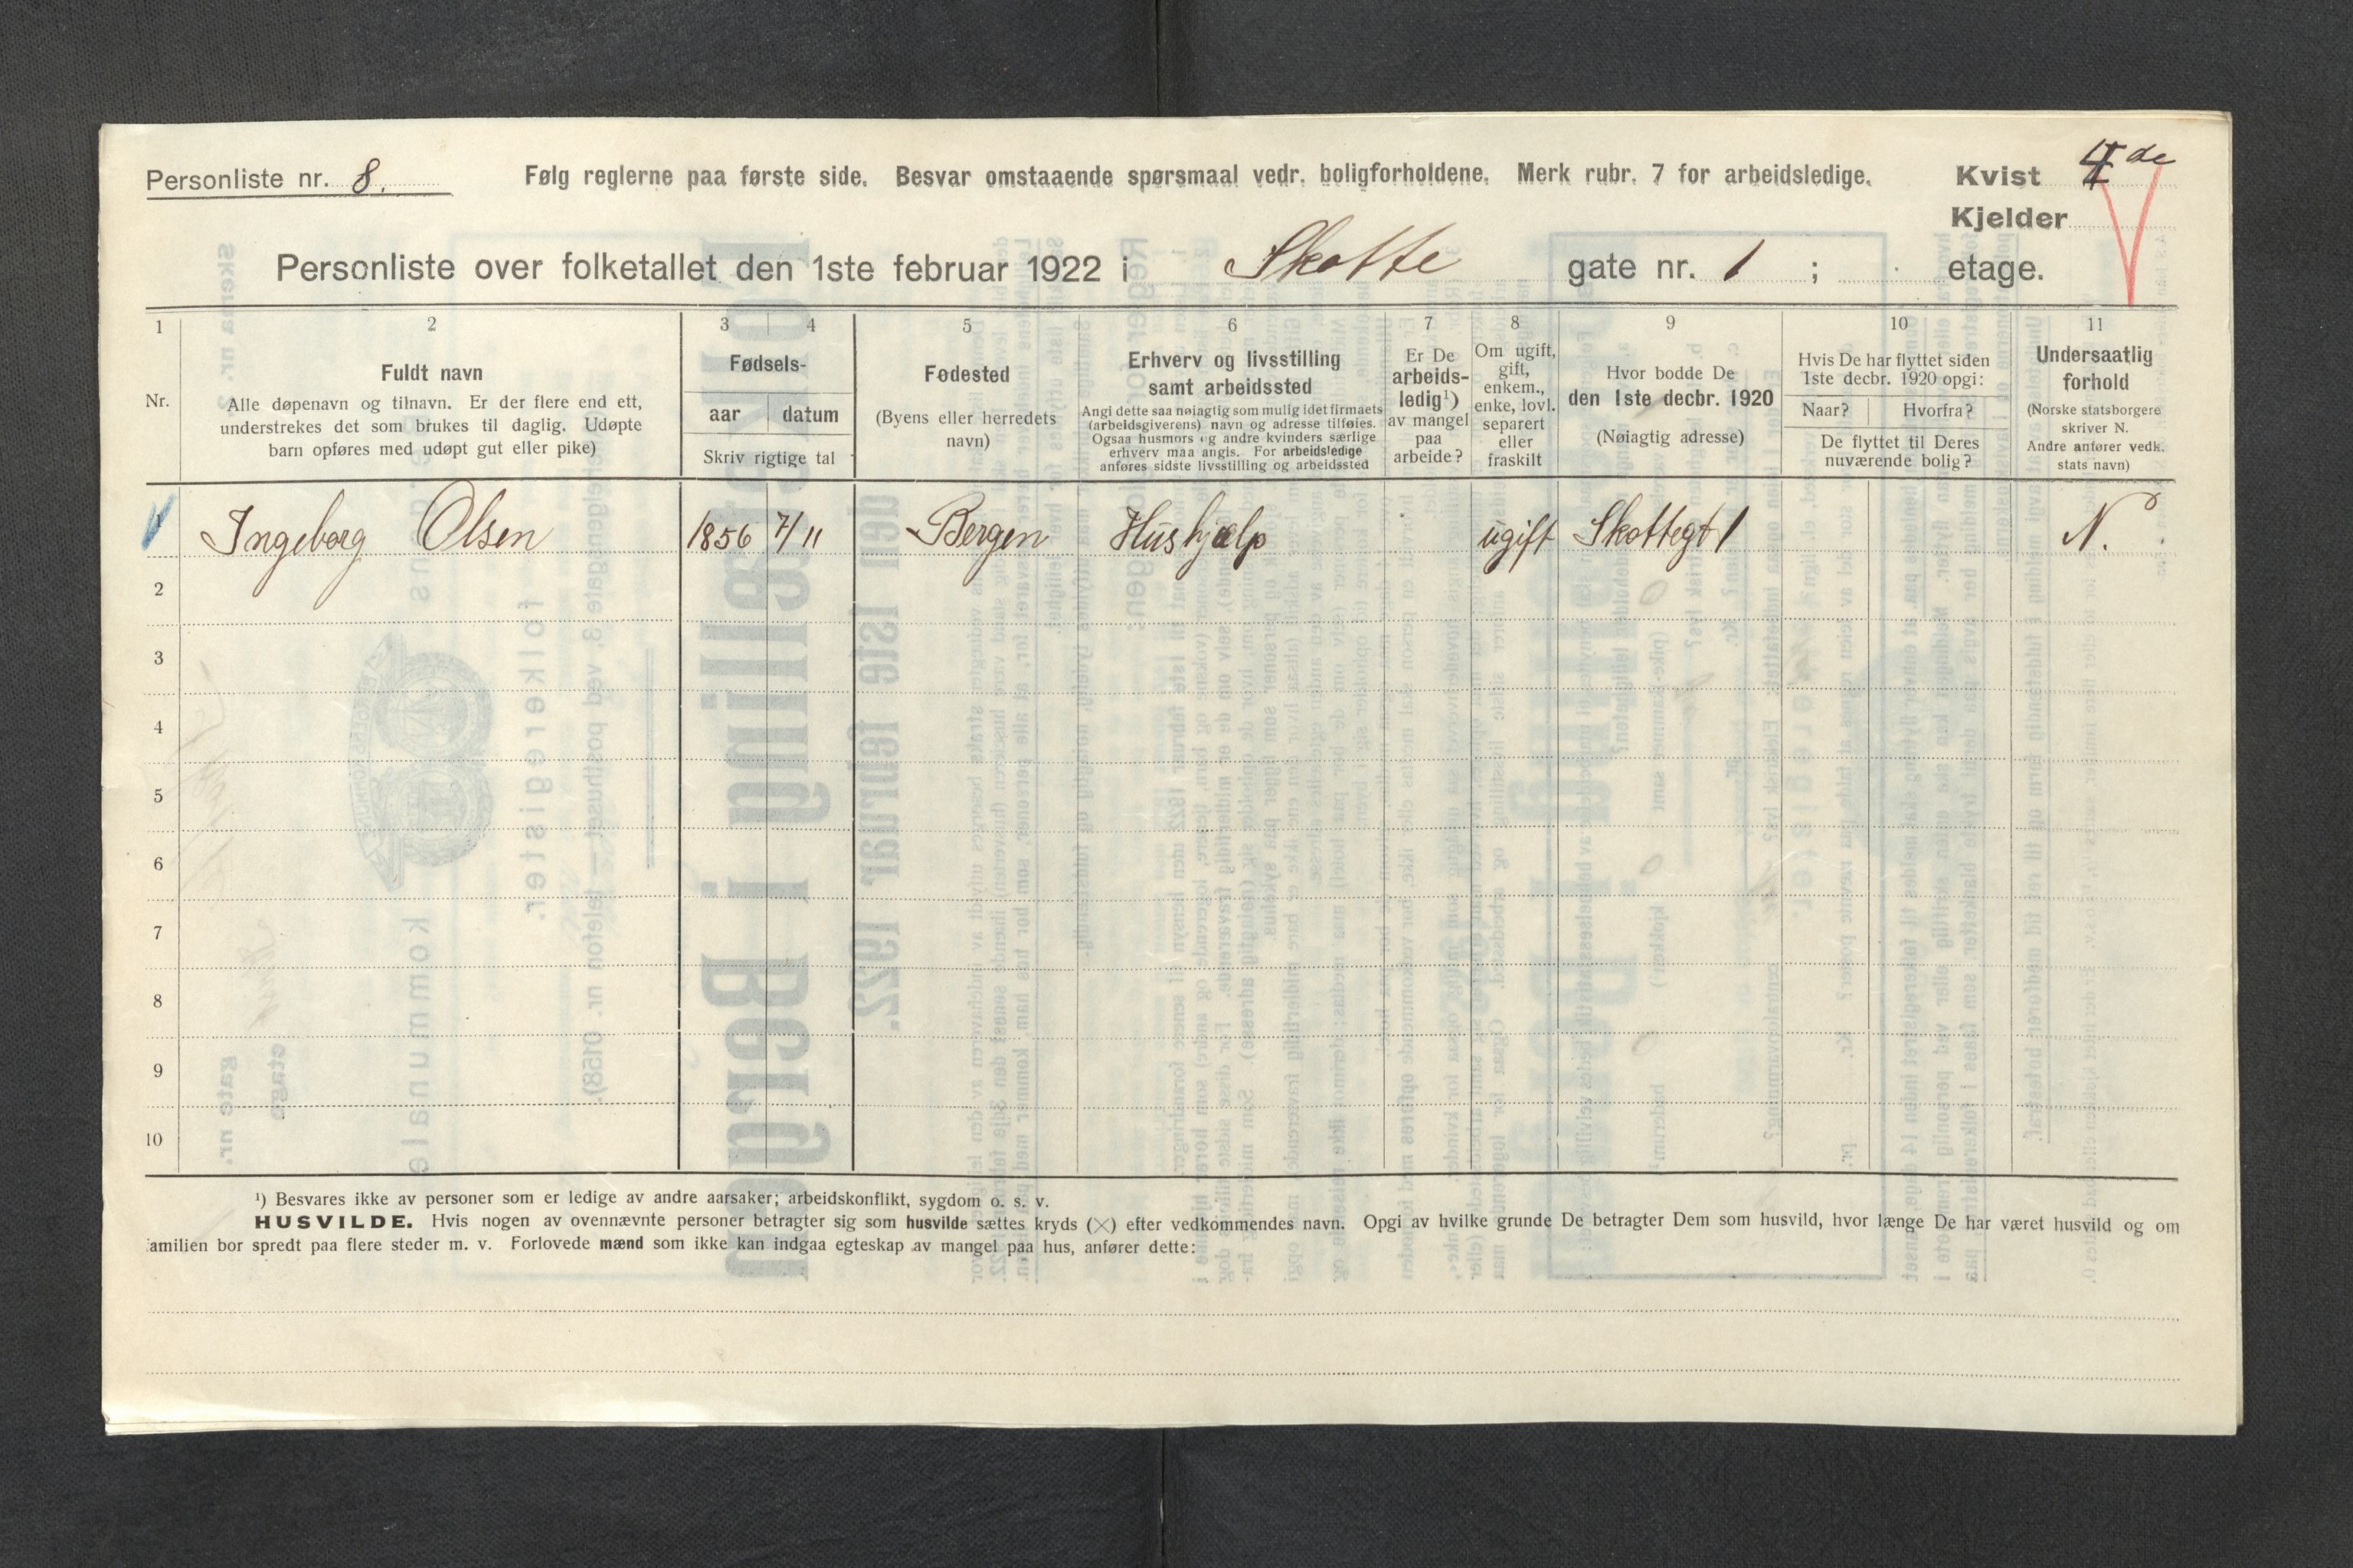 Personliste nr. 8.
Følg reglerne paa første side. Besvar omstaaende spørsmaal vedr. boligforholdene. Merk rubr. 7 for arbeidsledige.
Kvist 4de
Kjelder
Personliste over folketallet den 1ste februar 1922 i Skotte gate nr. 1 ; etage.
1 2 3 4 5 6 7 8 9 10 11
Nr.
Fuldt navn
Alle døpenavn og tilnavn. Er der flere end ett,
understrekes det som brukes til daglig. Udøpte
barn opføres med udøpt gut eller pike)
Fødsels-
aar datum
Skriv rigtige tal
Fødested
(Byens eller herredets
navn)
Erhverv og livsstilling
samt arbeidssted
Angi dette saa nøiagtig som mulig idet firmaets
(arbeidsgiverens) navn og adresse tilføies.
Ogsaa husmors og andre kvinders særlige
erhverv maa angis. For arbeidsledige
anføres sidste livsstilling og arbeidssted
Er De
arbeids-
ledig¹)
av mangel
paa
arbeide?
Om ugift,
gift,
enkem.,
enke, lovl.
separert
eller
fraskilt
Hvor bodde De
den 1ste decbr. 1920
(Nøiagtig adresse)
Hvis De har flyttet siden
1ste decbr. 1920 opgi:
Naar? Hvorfra?
De flyttet til Deres
nuværende bolig?
Undersaatlig
forhold
(Norske statsborgere
skriver N.
Andre anfører vedk.
stats navn)
1 Ingeborg Olsen 1856 7/11 Bergen Hushjælp ugift Skottegt 1 N.
2
3
4
5
6
7
8
9
10
¹) Besvares ikke av personer som er ledige av andre aarsaker; arbeidskonflikt, sygdom o. s. v.
HUSVILDE. Hvis nogen av ovennævnte personer betragter sig som husvilde sættes kryds (×) efter vedkommendes navn. Opgi av hvilke grunde De betragter Dem som husvild, hvor længe De har været husvild og om
familien bor spredt paa flere steder m. v. Forlovede mænd som ikke kan indgaa egteskap av mangel paa hus, anfører dette: